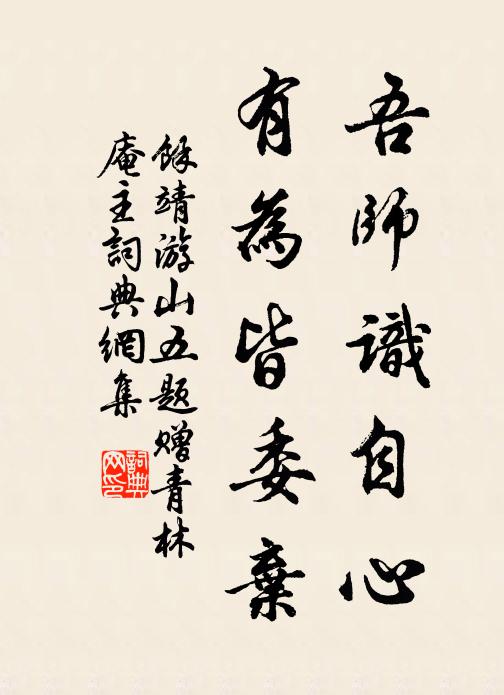 吾師識自心
有為皆委棄
餘靖游山五题贈青林
庵主詞典網集
詞典网印